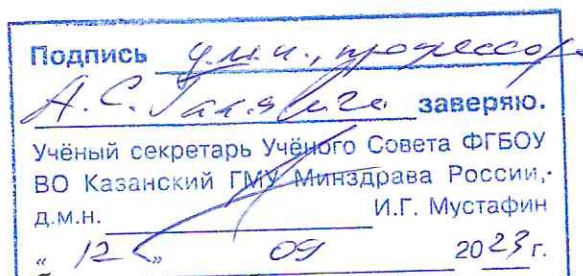 Подпись д.м.н., профессора
А.С. Галявича заверяю.
Учёный секретарь Учёного Совета ФГБОУ
ВО Казанский ГМУ Минздрава России,
д.м.н. И.Г. Мустафин
" 12 " 09 2023 г.